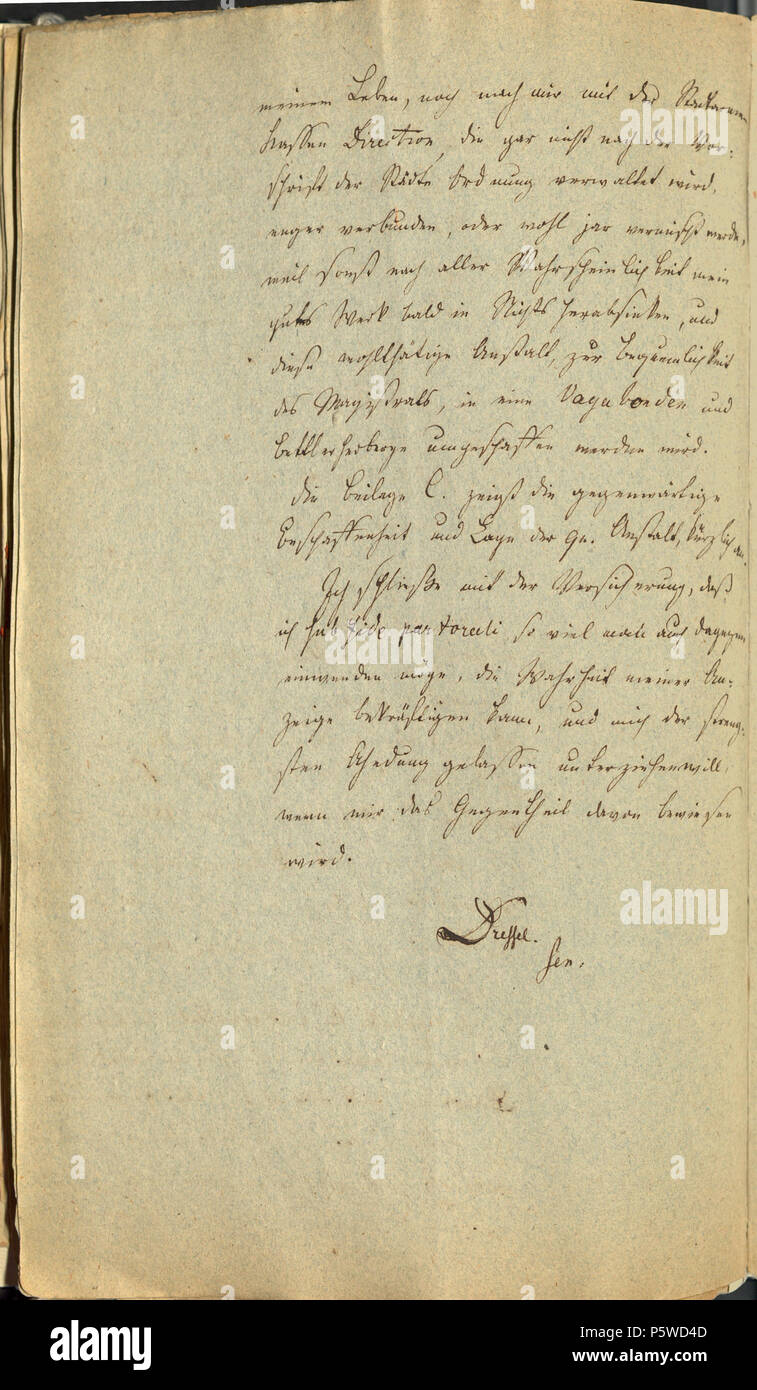 meinem Leben, noch nach mir mit der Stadtarmen
Kassen Direction, die gar nicht nach der Vor-
schrift der Städte Ordnung verwaltet wird,
enger verbunden, oder wohl gar vermischt werde,
weil sonst nach aller Wahrscheinlichkeit mein
gutes Werk bald in Nichts herabsinken, und
diese wohlthätige Anstalt, zur Bequemlichkeit
des Magistrats, in eine Vagabonden und
Bettlerherberge umgeschaffen werden wird.
Die Beilage C. zeigt die gegenwärtige
Beschaffenheit und Lage der qu. Anstalt, kürzlich an.
Ich schließe mit der Versicherung, daß
ich sub fide pastorali, so viel man auch dagegen
einwenden möge, die Wahrheit meiner An-
zeige bekräftigen kann, und mich der streng-
sten Ahndung gelassen unterziehen will,
wenn mir das Gegentheil davon bewiesen
wird.
Dressel.
sen.
alamy
Image ID: P5WD4D
www.alamy.com